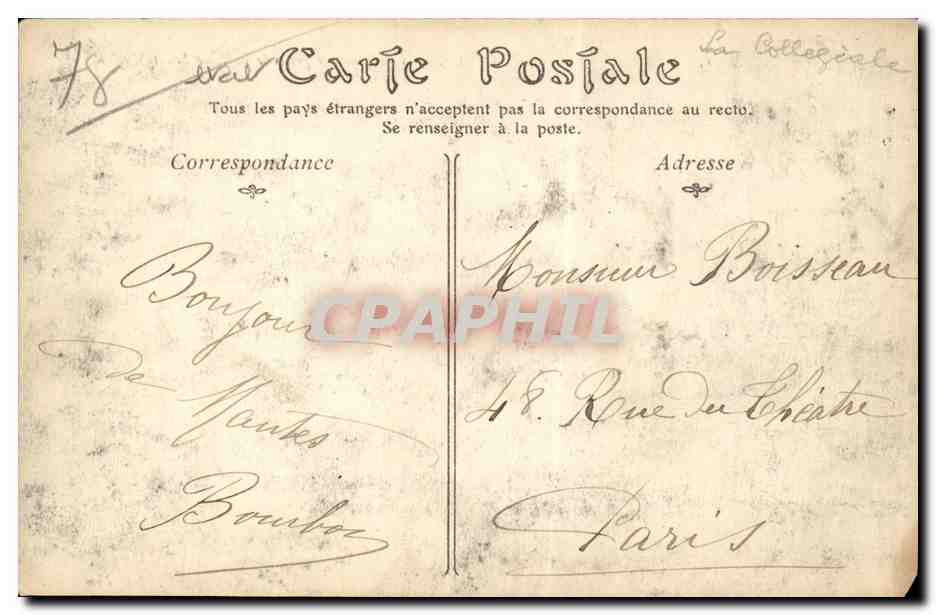 78
La Collégiale
Carte Postale
Tous les pays étrangers n'acceptent pas la correspondance au recto.
Se renseigner à la poste.
Correspondance
Adresse
Bonjour
de
Mantes
Bourbon
Monsieur Boisseau
48. Rue du Théatre
Paris
CPAPHIL